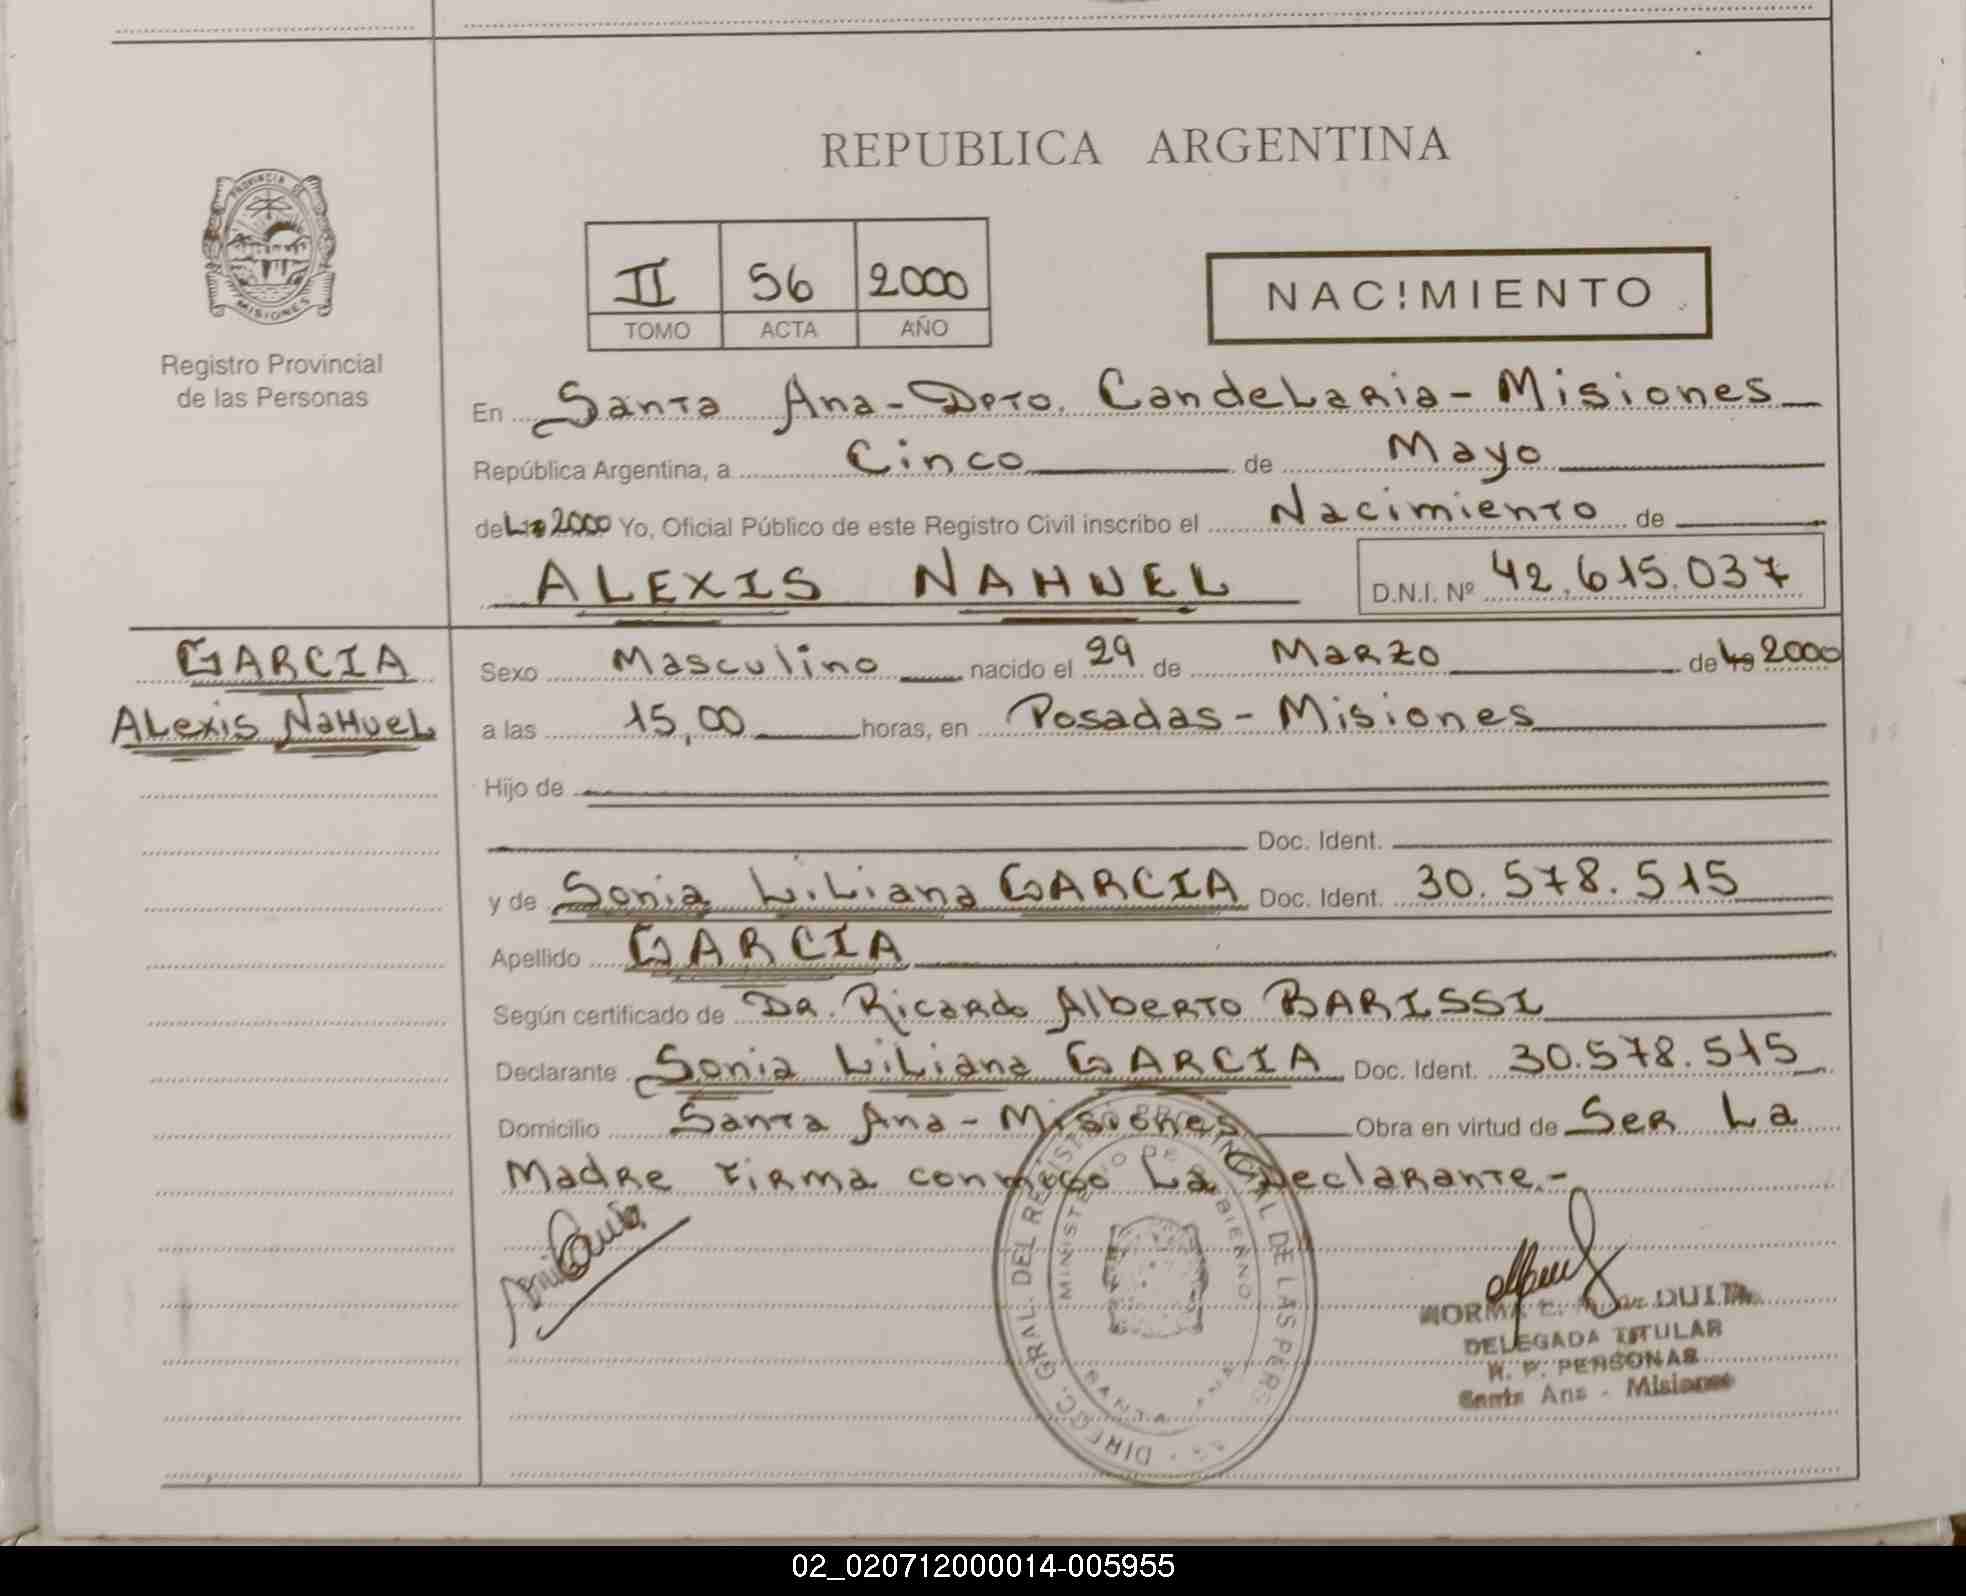 REPUBLICA ARGENTINA
PROVINCIA DE
MISIONES
Registro Provincial
de las Personas
II 56 2000
TOMO ACTA AÑO
NAC!MIENTO
En Santa Ana - Dpto. Candelaria - Misiones
República Argentina, a Cinco de Mayo
del 2000 Yo, Oficial Público de este Registro Civil inscribo el Nacimiento de
ALEXIS NAHUEL D.N.I. Nº 42.615.037
GARCIA
Alexis Nahuel
Sexo Masculino nacido el 29 de Marzo de 19 2000
a las 15,00 horas, en Posadas - Misiones
Hijo de
Doc. Ident.
y de Sonia Liliana GARCIA Doc. Ident. 30.578.515
Apellido GARCIA
Según certificado de Dr. Ricardo Alberto BARISSI
Declarante Sonia Liliana GARCIA Doc. Ident. 30.578.515
Domicilio Santa Ana - Misiones Obra en virtud de Ser La
Madre Firma conmigo La Declarante.-
DIRECC. GRAL. DEL REGISTRO PROVINCIAL DE LAS PERS
MINISTERIO DE GOBIERNO
SANTA ANA
NORMA E.
DELEGADA TITULAR
R. P. PERSONAS
Santa Ana - Misiones
02_020712000014-005955